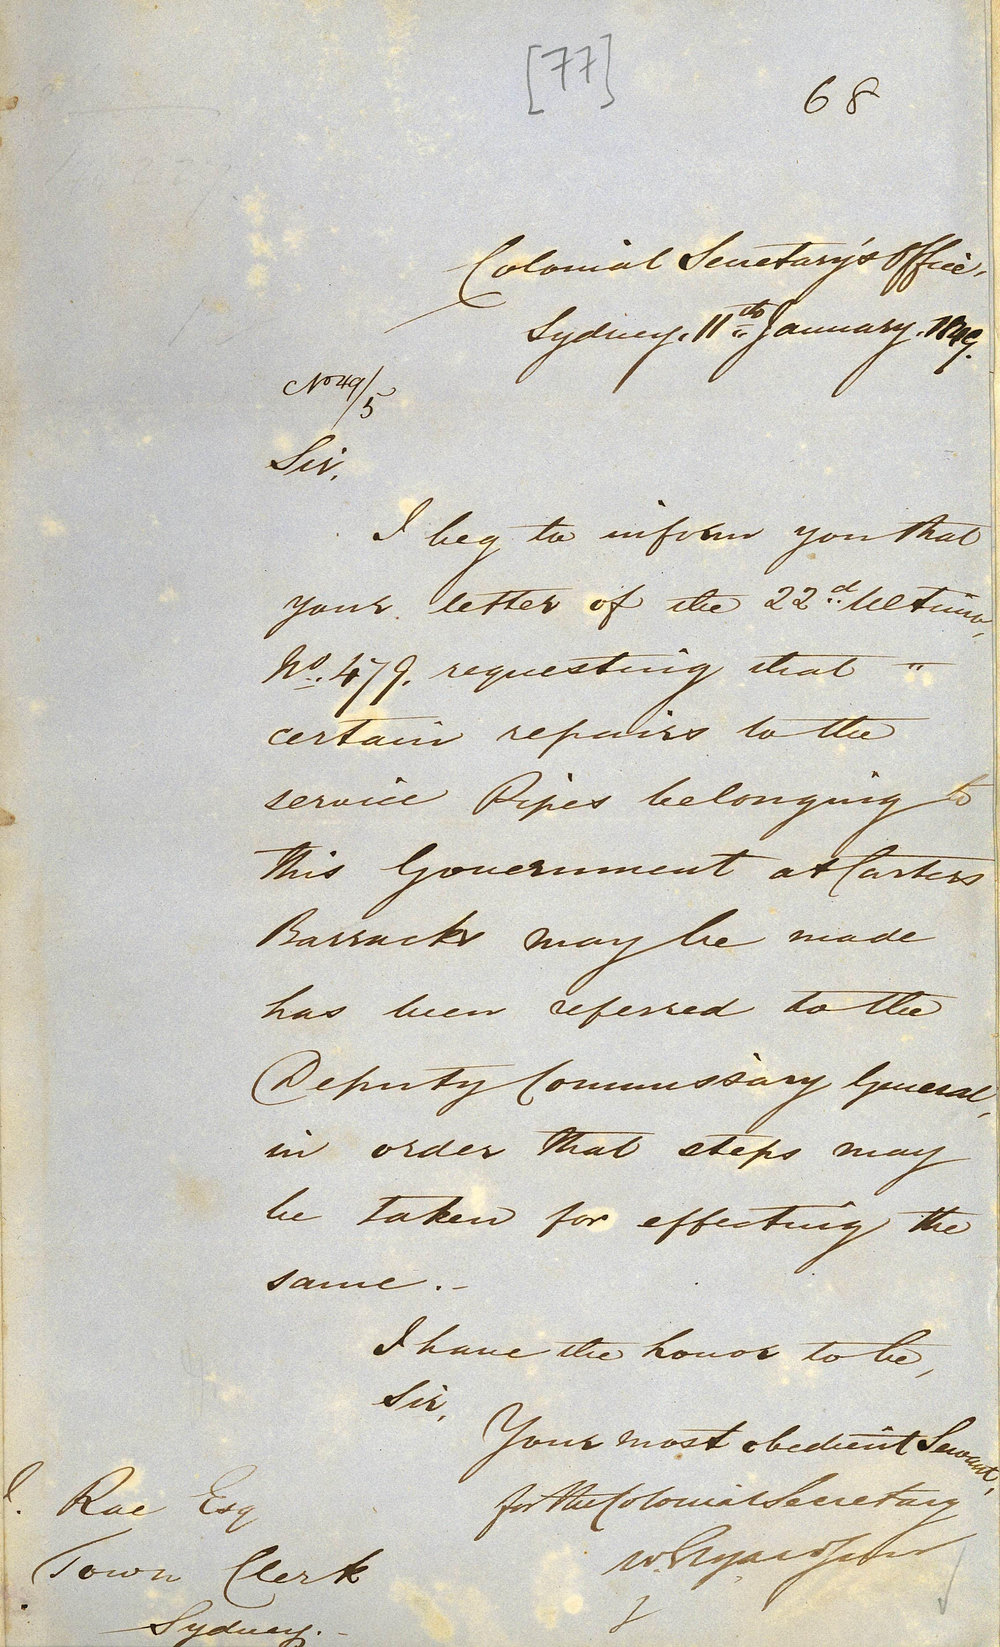 [77]
68
Colonial Secretary's Office,
Sydney, 11th January, 1849.
No 49/5
Sir,
I beg to inform you that
your letter of the 22d. Ultimo,
No. 479, requesting that "
certain repairs to the
service Pipes belonging to
this Government at Carters
Barracks may be made
has been referred to the
Deputy Commissary General,
in order that steps may
be taken for effecting the
same.-
I have the honor to be,
Sir,
Your most obedient Servant,
for the Colonial Secretary
W
J. Rae Esq
Town Clerk
Sydney.-